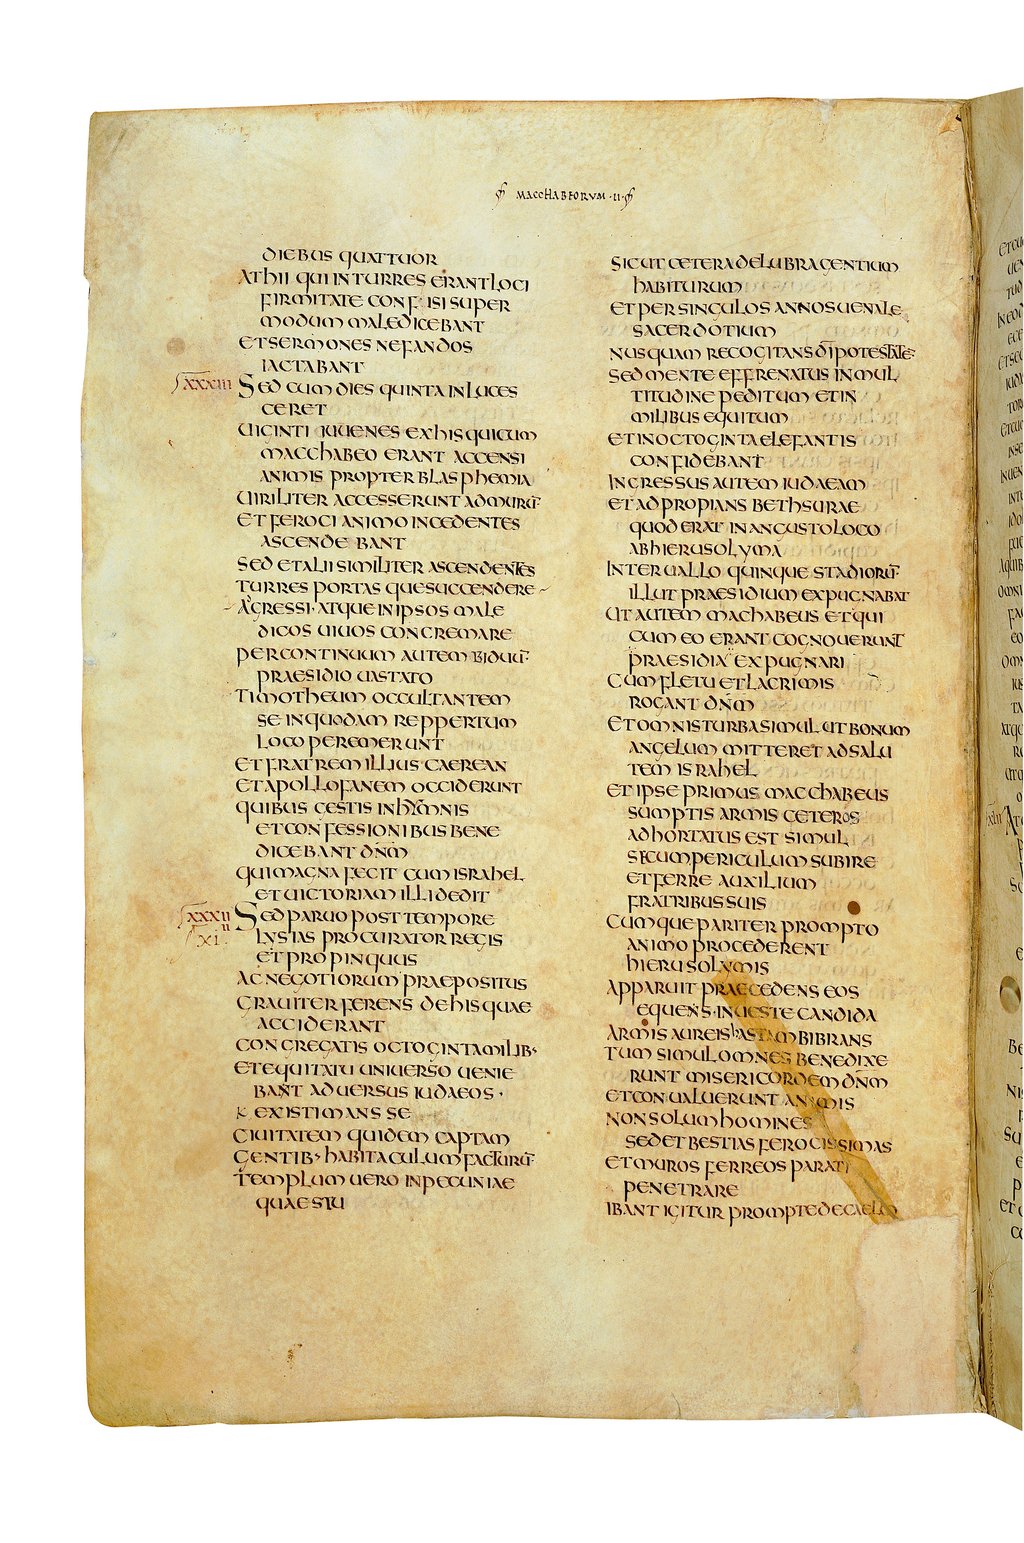 MACCHABEORUM · II ·
DIEBUS QUATTUOR
AT HII QUI IN TURRES ERANT LOCI
FIRMITATE CONFISI SUPER
MODUM MALEDICEBANT
ET SERMONES NEFANDOS
IACTABANT
XXXIII SED CUM DIES QUINTA INLUCES
CERET
UIGINTI IUUENES EX HIS QUI CUM
MACCHABEO ERANT ACCENSI
ANIMIS PROPTER BLASPHEMIA
UIRILITER ACCESSERUNT AD MURŪ
ET FEROCI ANIMO INCEDENTES
ASCENDEBANT
SED ET ALII SIMILITER ASCENDENTES
TURRES PORTASQUE SUCCENDERE
AGRESSI · ATQUE IN IPSOS MALE
DICOS UIUOS CONCREMARE
PER CONTINUUM AUTEM BIDUŪ
PRAESIDIO UASTATO
TIMOTHEUM OCCULTANTEM
SE IN QUODAM REPPERTUM
LOCO PEREMERUNT
ET FRATREM ILLIUS CAEREAN
ET APOLLOFANEM OCCIDERUNT
QUIBUS GESTIS IN HYMNIS
ET CONFESSIONIBUS BENE
DICEBANT DN̄M
QUI MAGNA FECIT CUM ISRAHEL
ET UICTORIAM ILLI DEDIT
XXXIIII SED PARUO POST TEMPORE
XI LYSIAS PROCURATOR REGIS
ET PROPINQUUS
AC NEGOTIORUM PRAEPOSITUS
GRAUITER FERENS DE HIS QUAE
ACCIDERANT
CONGREGATIS OCTOGINTA MILIB·
ET EQUITATU UNIUERSO UENIE
BANT ADUERSUS IUDAEOS ·
EXISTIMANS SE
CIUITATEM QUIDEM CAPTAM
GENTIB· HABITACULUM FACTURŪ
TEMPLUM UERO IN PECUNIAE
QUAESTU
SICUT CETERA DELUBRA GENTIUM
HABITURUM
ET PER SINGULOS ANNOS UENALE
SACERDOTIUM
NUSQUAM RECOGITANS DĪ POTESTATĒ
SED MENTE EFFRENATUS IN MUL
TITUDINE PEDITUM ET IN
MILIBUS EQUITUM
ET IN OCTOGINTA ELEFANTIS
CONFIDEBANT
INGRESSUS AUTEM IUDAEAM
ET ADPROPIANS BETHSURAE
QUOD ERAT IN ANGUSTO LOCO
AB HIERUSOLYMA
INTERUALLO QUINQUE STADIORŪ
ILLUT PRAESIDIUM EXPUGNABAT
UT AUTEM MACHABEUS ET QUI
CUM EO ERANT COGNOUERUNT
PRAESIDIA EXPUGNARI
CUM FLETU ET LACRIMIS
ROGANT DN̄M
ET OMNIS TURBA SIMUL UT BONUM
ANGELUM MITTERET AD SALU
TEM ISRAHEL
ET IPSE PRIMUS MACCHABEUS
SUMPTIS ARMIS CETEROS
ADHORTATUS EST SIMUL
SECUM PERICULUM SUBIRE
ET FERRE AUXILIUM
FRATRIBUS SUIS
CUMQUE PARITER PROMPTO
ANIMO PROCEDERENT
HIERUSOLYMIS
APPARUIT PRAECEDENS EOS
EQUENS · IN UESTE CANDIDA
ARMIS AUREIS HASTAM BIBRANS
TUM SIMUL OMNES BENEDIXE
RUNT MISERICORDEM DN̄M
ET CONUALUERUNT ANIMIS
NON SOLUM HOMINES
SED ET BESTIAS FEROCISSIMAS
ET MUROS FERREOS PARATI
PENETRARE
IBANT IGITUR PROMPTE DE CAELO